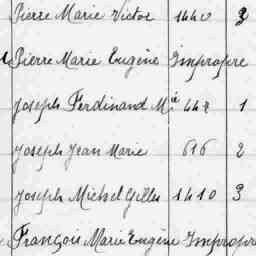 Pierre Marie Victor 1440 3
Pierre Marie Eugène Impropre
Joseph Ferdinand M.ie 448 1
Joseph Jean Marie 616 2
Joseph Michel Gilles 1410 3
François Marie Eugène Impropre